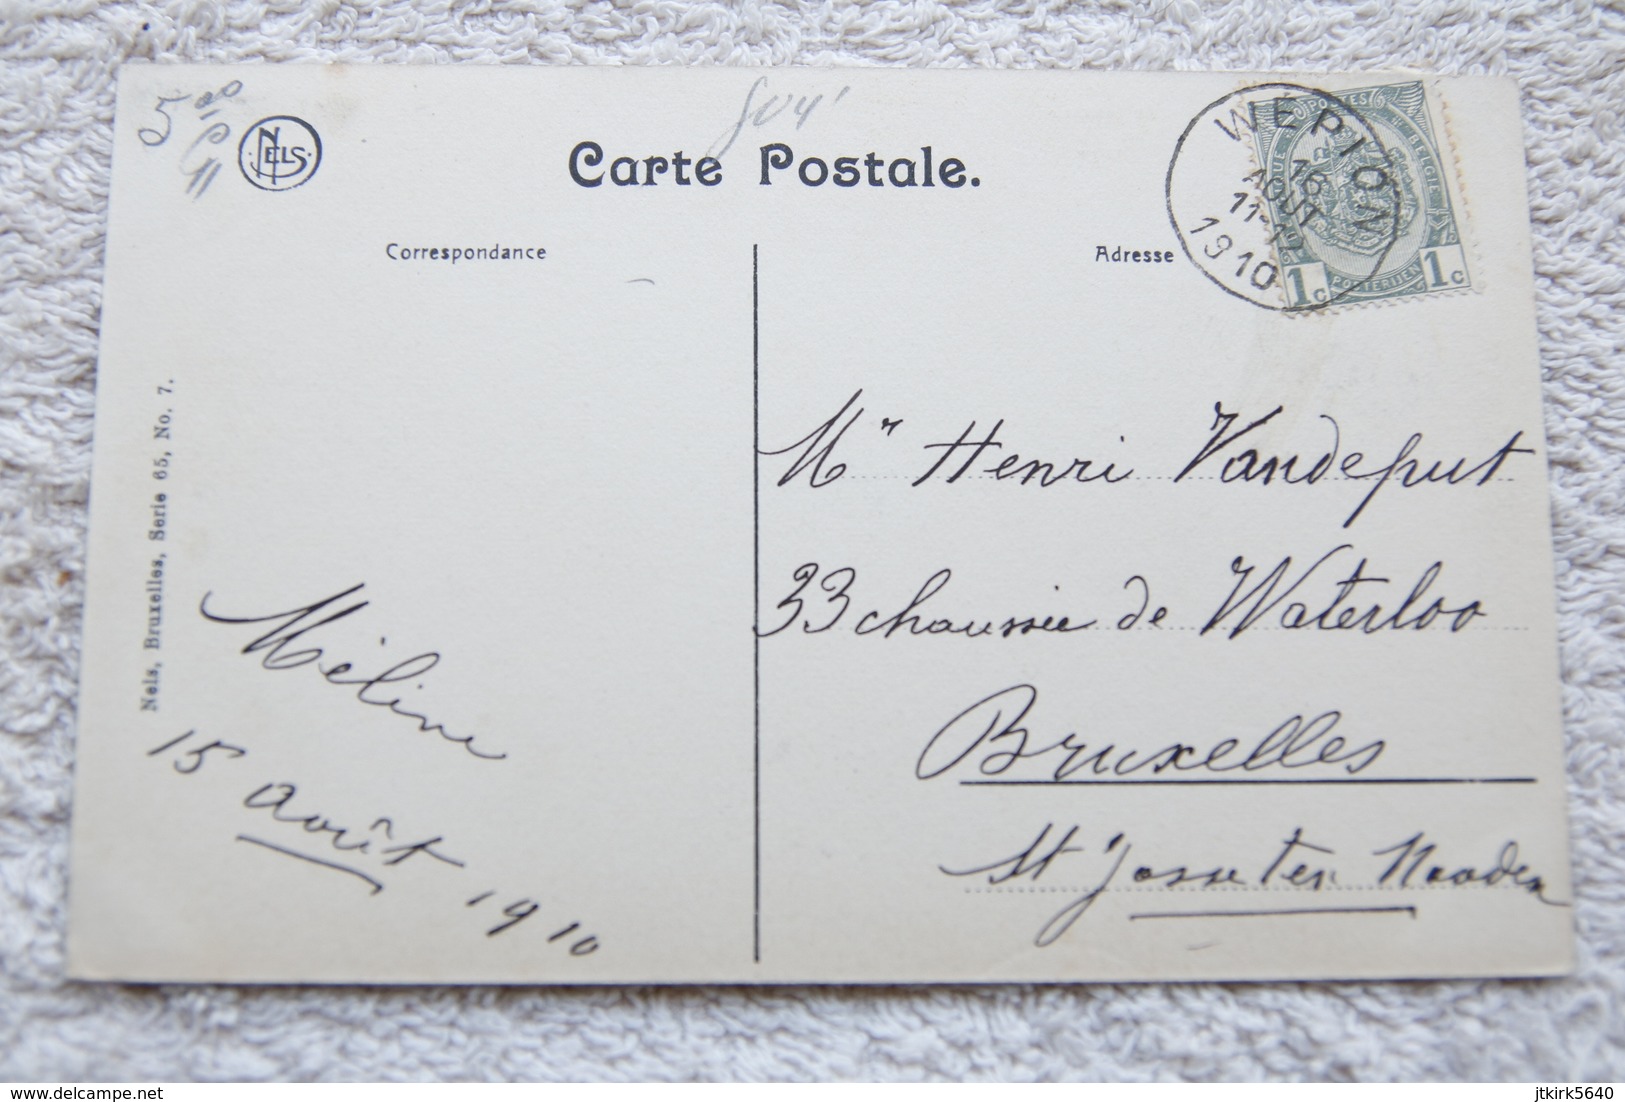 5
NELS
Carte Postale.
WÉPION
16
AOUT
11-
1910
POSTES
BELGIE
POSTERIJEN
1c
1c
Correspondance
Adresse
Nels, Bruxelles, Serie 65, No. 7.
Mr Henri Vandeput
33 chaussée de Waterloo
Bruxelles
St Josse ten Nooden
Méline
15 août 1910
www.delcampe.net
jtkirk5640